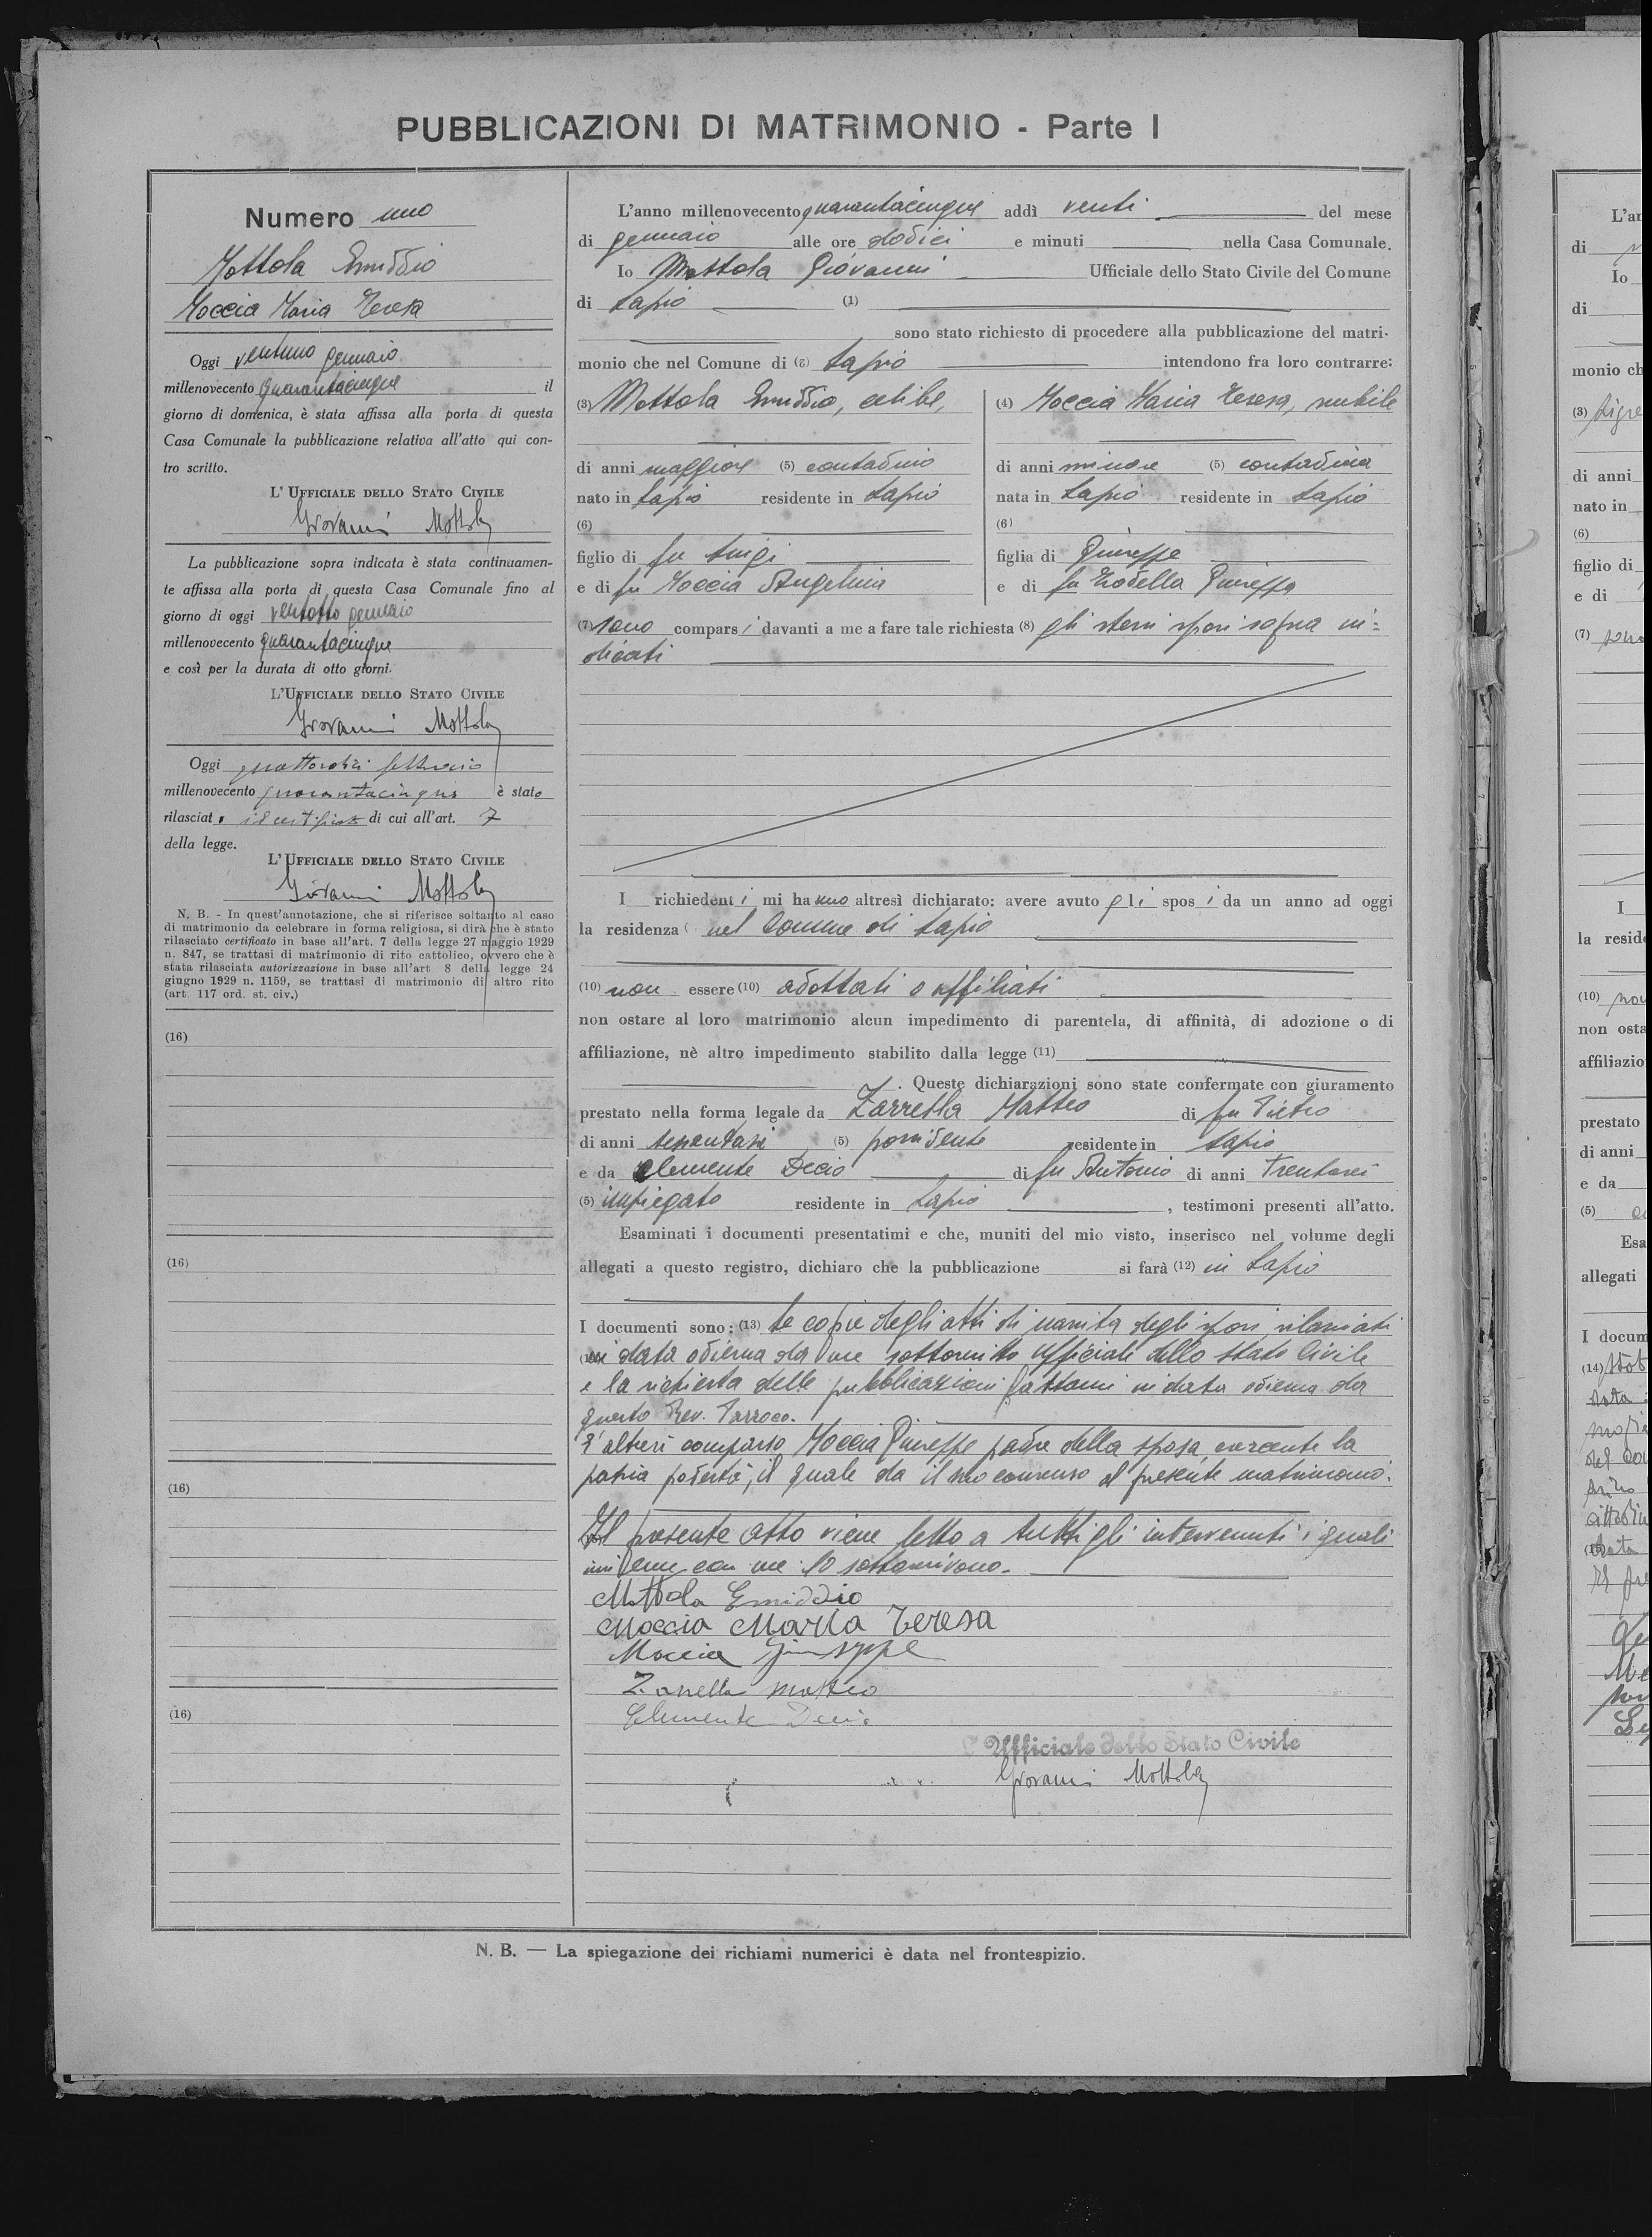 PUBBLICAZIONI DI MATRIMONIO - Parte I
Numero uno
Mottola Emiddio
Moccia Maria Teresa
Oggi ventuno gennaio
millenovecento quarantacinque il
giorno di domenica, è stata affissa alla porta di questa
Casa Comunale la pubblicazione relativa all'atto qui con-
tro scritto.
L'UFFICIALE DELLO STATO CIVILE
Giovanni Mottola
La pubblicazione sopra indicata è stata continuamen-
te affissa alla porta di questa Casa Comunale fino al
giorno di oggi ventotto gennaio
millenovecento quarantacinque
e così per la durata di otto giorni.
L'UFFICIALE DELLO STATO CIVILE
Giovanni Mottola
Oggi quattordici febbraio
millenovecento quarantacinque è stato
rilasciato il certificato di cui all'art. 7
della legge.
L'UFFICIALE DELLO STATO CIVILE
Giovanni Mottola
N. B. - In quest'annotazione, che si riferisce soltanto al caso
di matrimonio da celebrare in forma religiosa, si dirà che è stato
rilasciato certificato in base all'art. 7 della legge 27 maggio 1929
n. 847, se trattasi di matrimonio di rito cattolico, ovvero che è
stata rilasciata autorizzazione in base all'art 8 della legge 24
giugno 1929 n. 1159, se trattasi di matrimonio di altro rito
(art. 117 ord. st. civ.)
(16)
(16)
(16)
(16)
L'anno millenovecento quarantacinque addì venti del mese
di gennaio alle ore dodici e minuti nella Casa Comunale.
Io Mottola Giovanni Ufficiale dello Stato Civile del Comune
di Lapio (1)
sono stato richiesto di procedere alla pubblicazione del matri-
monio che nel Comune di (2) Lapio intendono fra loro contrarre:
(3) Mottola Emiddio, celibe,
di anni maggiore (5) contadino
nato in Lapio residente in Lapio
(6)
figlio di fu Luigi
e di fu Moccia Angelina
(4) Moccia Maria Teresa, nubile
di anni minore (5) contadina
nata in Lapio residente in Lapio
(6)
figlia di Giuseppe
e di fu Trodella Giuseppa
(7) sono comparsi davanti a me a fare tale richiesta (8) gli stessi sposi sopra in=
dicati
I richiedenti mi hanno altresì dichiarato: avere avuto gli sposi da un anno ad oggi
la residenza ( nel Comune di Lapio
(10) non essere (10) adottati o affiliati
non ostare al loro matrimonio alcun impedimento di parentela, di affinità, di adozione o di
affiliazione, nè altro impedimento stabilito dalla legge (11)
. Queste dichiarazioni sono state confermate con giuramento
prestato nella forma legale da Zarrella Matteo di fu Pietro
di anni sessantasei (5) possidente residente in Lapio
e da Clemente Decio di fu Antonio di anni trentasei
(5) impiegato residente in Lapio , testimoni presenti all'atto.
Esaminati i documenti presentatimi e che, muniti del mio visto, inserisco nel volume degli
allegati a questo registro, dichiaro che la pubblicazione si farà (12) in Lapio
I documenti sono: (13) le copie degli atti di nascita degli sposi rilasciati
in data odierna da me sottoscritto Ufficiale dello Stato Civile
e la richiesta delle pubblicazioni fattami in data odierna da
questo Rev. Parroco.
È altresì comparso Moccia Giuseppe padre della sposa, esercente la
patria podestà, il quale da il suo consenso al presente matrimonio.
Il presente atto viene letto a tutti gli intervenuti i quali
insieme con me lo sottoscrivono.
Mottola Emiddio
Moccia Maria Teresa
Moccia Giuseppe
Zarrella Matteo
Clemente Decio
L'Ufficiale dello Stato Civile
Giovanni Mottola
N. B. — La spiegazione dei richiami numerici è data nel frontespizio.
L'an
di
Io
di
monio ch
(3)
di anni
nato in
(6)
figlio di
e di
(7)
I
la resid
(10)
non osta
affiliazio
prestato
di anni
e da
(5)
Esa
allegati
I docum
(14)